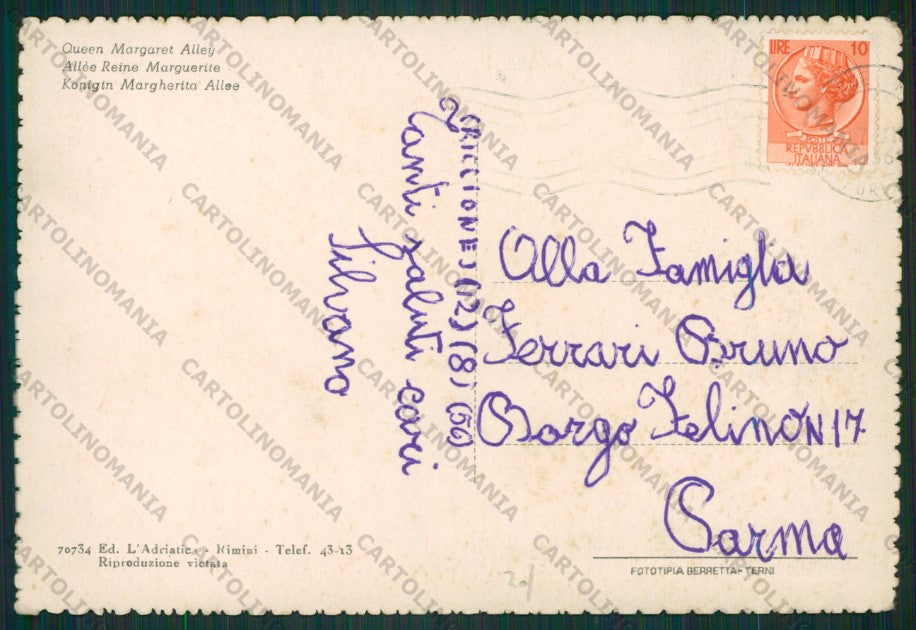 Queen Margaret Alley
Allèe Reine Marguerite
Königin Margherita Allee
LIRE 10
POSTE
REPVBBLICA
ITALIANA
(RICCIONE) (12) (8) (56)
Tanti saluti cari
Silvano
Alla Famiglia
Ferrari Bruno
Borgo Felino N 17
Parma
70734 Ed. L'Adriatica - Rimini - Telef. 43-13
Riproduzione vietata
FOTOTIPIA BERRETTA - TERNI
20/
CARTOLINOMANIA